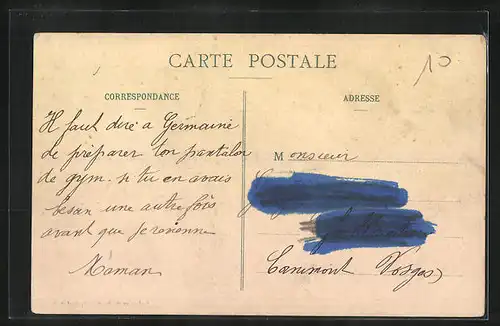 CARTE POSTALE
10
CORRESPONDANCE
ADRESSE
Il faut dire a Germaine
de préparer ton pantalon
de gym. si tu en avais
besoin une autre fois
avant que je revienne
Maman
Monsieur
Vosges